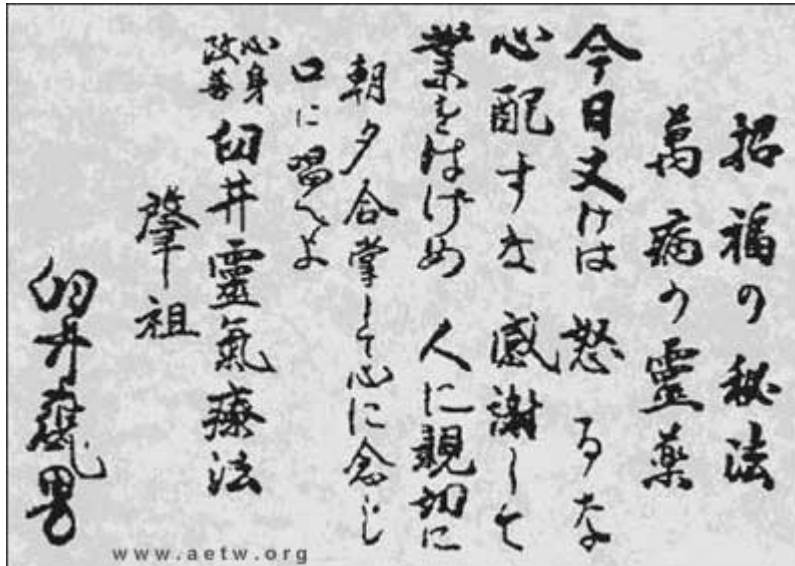 招福の秘法
萬病の靈薬
今日丈けは 怒るな
心配すな 感謝して
業をはげめ 人に親切に
朝夕合掌して心に念じ
口に唱へよ
心身
改善
臼井靈氣療法
肇祖
臼井甕男
www.aetw.org